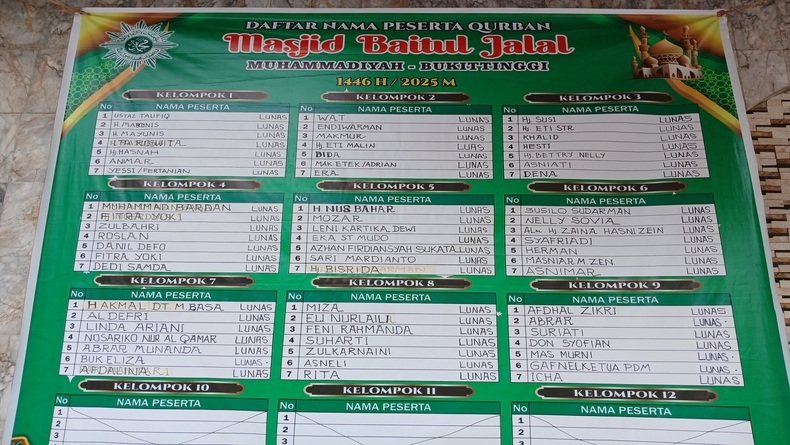 DAFTAR NAMA PESERTA QURBAN
Masjid Baitul Jalal
MUHAMMADIYAH - BUKITTINGGI
1446 H / 2025 M
KELOMPOK 1
No NAMA PESERTA
1 USTAI TAUFIQ LUNAS
2 H. MARONIS LUNAS
3 H. MASYUNIS LUNAS
4 LUNAS
5 Hj HASNAH LUNAS
6 ANMAR LUNAS
7 YESSI / PERTANIAN LUNAS
KELOMPOK 2
No NAMA PESERTA
1 WAT LUNAS
2 ENDIWARMAN LUNAS
3 MAKMUR LUNAS
4 Hj. ETI MALIN LUAS
5 BIDA LUNAS
6 MAK ETEK / ADRIAN LUNAS
7 ERA LUNAS
KELOMPOK 3
No NAMA PESERTA
1 Hj SUSI LUNAS
2 Hj ETI STR LUNAS
3 KHALID LUNAS
4 HESTI LUNAS
5 Hj. BETTRY NELLY LUNAS
6 ASNIATI LUNAS
7 DENA LUNAS
KELOMPOK 4
No NAMA PESERTA
1 MUHAMMAD BARDAN LUNAS
2 FITRA YOKI LUNAS
3 ZULBAHRI LUNAS
4 ROSLAN LUNAS
5 DANIL DEFO LUNAS
6 FITRA YOKI LUNAS
7 DEDI SAMDA LUNAS
KELOMPOK 5
No NAMA PESERTA
1 H. NUR BAHAR LUNAS
2 MOZAR LUNAS
3 LENI KARTIKA DEWI LUNAS
4 EKA ST MUDO LUNAS
5 AZHAN FIRDIANSYAH SUKATA LUNAS
6 SARI MARDIANTO LUNAS
7 Hj BISRIDA LUNAS
KELOMPOK 6
No NAMA PESERTA
1 SUSILO SUDARMAN LUNAS
2 NELLY SOVIA LUNAS
3 Alm. Hj ZAINA HASNI ZEIN LUNAS
4 SYAFRIADI LUNAS
5 HERMAN LUNAS
6 MASNIAR M ZEN LUNAS
7 ASNIMAR LUNAS
KELOMPOK 7
No NAMA PESERTA
1 H AKMAL DT. M. BASA LUNAS
2 ALDEFRI LUNAS
3 LINDA ARIANI LUNAS
4 NOSARIKO NUR AL QAMAR LUNAS
5 ABRAR MUNANDA LUNAS
6 BUK ELIZA LUNAS
7 LUNAS
KELOMPOK 8
No NAMA PESERTA
1 MIZA LUNAS
2 ELI NURLAILI LUNAS
3 FENI RAHMANDA LUNAS
4 SUHARTI LUNAS
5 ZULKARNAINI LUNAS
6 ASNELI LUNAS
7 RITA LUNAS
KELOMPOK 9
No NAMA PESERTA
1 AFDHAL ZIKRI LUNAS
2 ABRAR LUNAS
3 SURIATI LUNAS
4 DON SYOFIAN LUNAS
5 MAS MURNI LUNAS
6 GAFNEL KETUA PDM LUNAS
7 ICHA LUNAS
KELOMPOK 10
No NAMA PESERTA
1
2
3
KELOMPOK 11
No NAMA PESERTA
1
2
3
KELOMPOK 12
No NAMA PESERTA
1
2
3